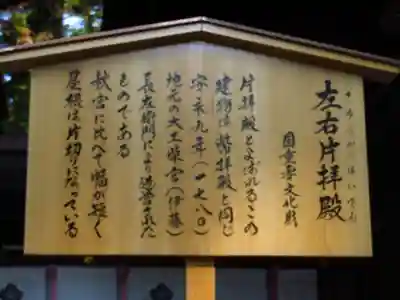 さゆうかたはいでん
左右片拝殿
国重要文化財
片拝殿とよばれるこの
建物は幣拝殿と同じ
安永九年（一七八〇）
地元の大工柴宮（伊藤）
長左衛門により造営された
ものである
秋宮に比べて幅が短く
屋根は片切りになっている